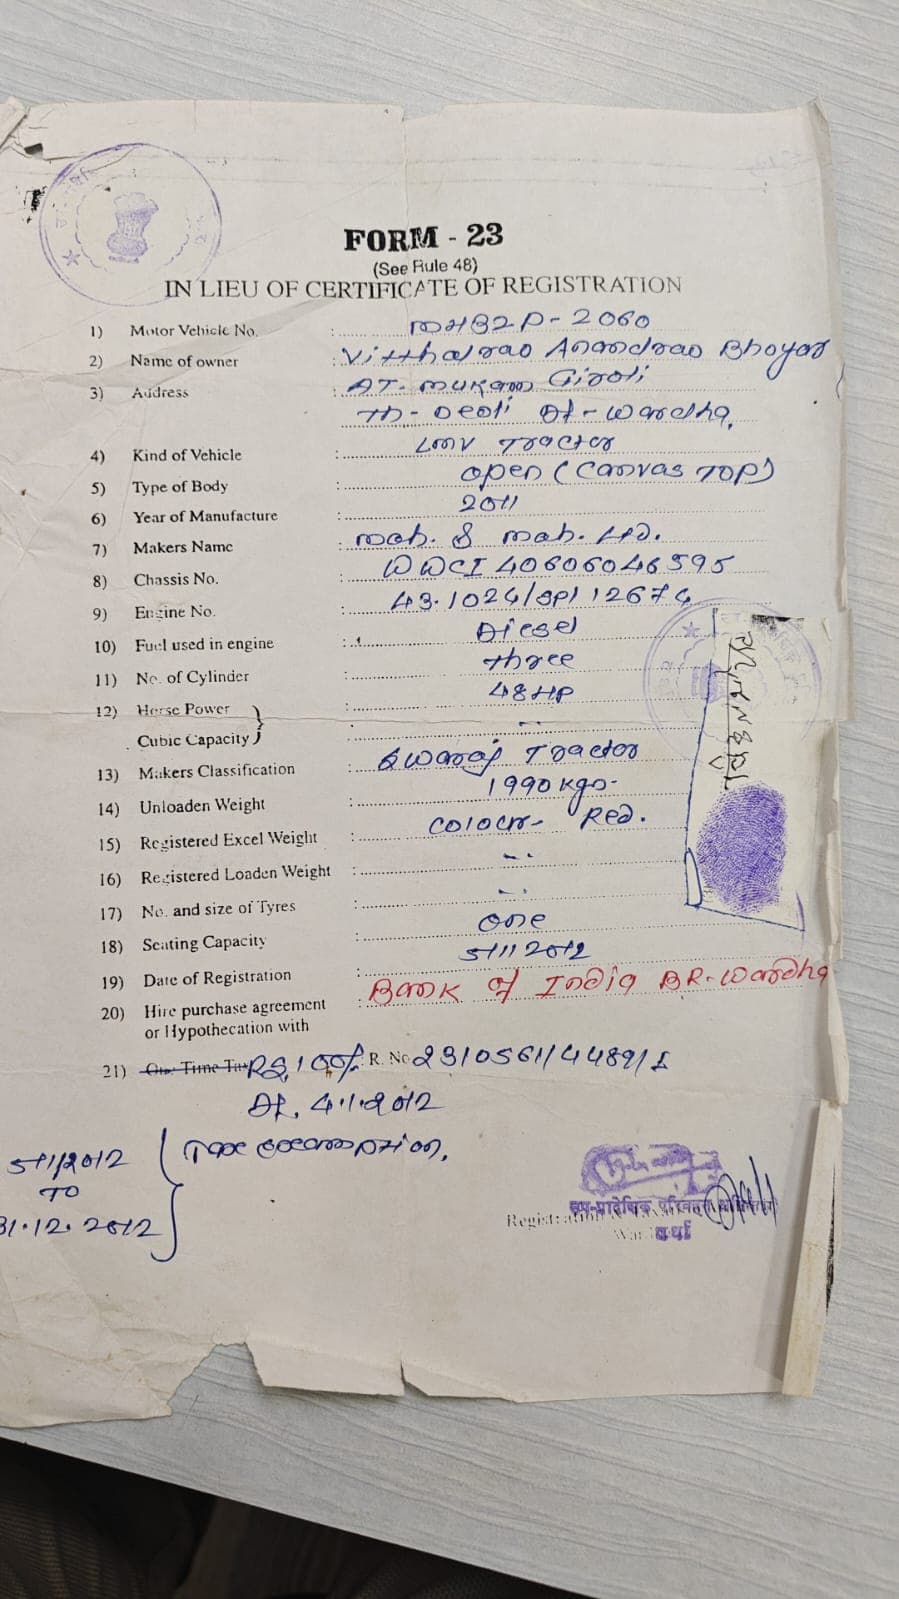 FORM - 23
(See Rule 48)
IN LIEU OF CERTIFICATE OF REGISTRATION
1) Motor Vehicle No. : MH32P-2060
2) Name of owner : Vitthalrao Anandrao Bhoyar
3) Address : AT. mukam Giroli
Th- Deoli Dt- Wardha.
4) Kind of Vehicle : LMV Tractor
5) Type of Body : open (Canvas TOP)
6) Year of Manufacture : 2011
7) Makers Name : mah. & mah. Ltd.
8) Chassis No. : WWCI 40606046595
9) Engine No. : 43.1024/SPI 12674
10) Fuel used in engine : Diesel
11) No. of Cylinder : three
12) Horse Power : 48HP
Cubic Capacity
13) Makers Classification : Swaraj Tractor
14) Unloaden Weight : 1990 kgs-
15) Registered Excel Weight : Colour- Red.
16) Registered Loaden Weight :
17) No. and size of Tyres :
18) Seating Capacity : one
19) Date of Registration : 5/1/2012
20) Hire purchase agreement : Bank of India BR-Wardha
or Hypothecation with
21) One Time Tax RS, 100/- R. No 2310561/44891/I
Dt. 4.1.2012
Tax exemption.
5/1/2012
TO
31.12.2012
उप-प्रादेशिक परिवहन
वर्धा